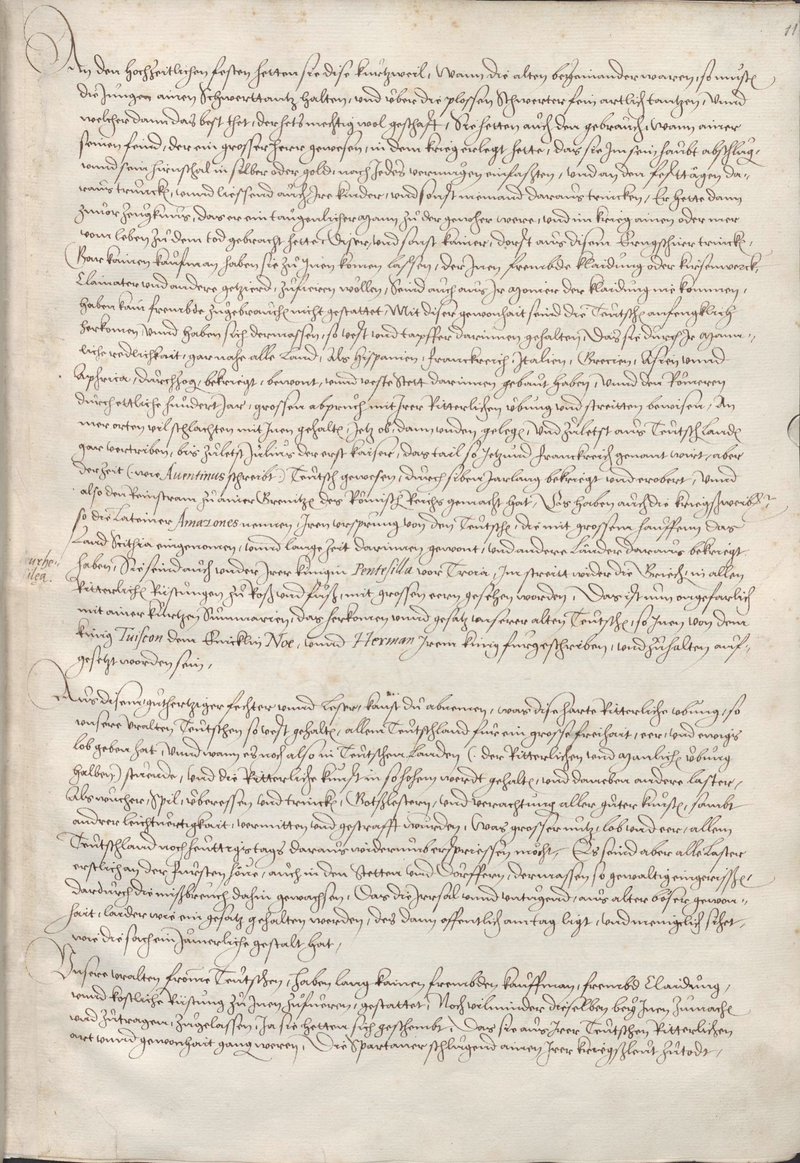 11
An den hochzeitlichen festen hetten sie dise kurtzweil, Wann die alten beyeinander waren, so musten
die Jungen ainen Schwerttantz halten, vnd vber die plossen Schwerter fein artlich tantzen, Vnnd
welcher dann das best thet, der hets mechtig wol geschafft, Sie hetten auch den gebrauch, Wann ainer
seinen feind, der ein grosser herr gewesen, in dem krieg erlegt hette, das sie Im sein haubt abschlug,
vnnd sein hirnschal in silber oder gold, nach Jedes vermugen einfasten, Vnd an den festtägen da-
raus truncken, vnnd liessend auch Ire kinder, vnd sonst niemand daraus trincken, Er hette dann
zuuor zeugknus, das er ein taugenlicher Mann zu der gewher were, vnd im krieg ainen oder mer
vom leben zu dem tod gebracht hette, Diser, vnd sonst kainer, dorfft aus disem trincken,
Gar kainen kaufman haben sie zu Inen komen lassen, der Inen frembde klaidung oder kürsenwerck,
Clainater vnd andere getzierd, zufieren wöllen, Seind auch aus Ir Monier der klaidung nie komen,
haben kain frembde zugebrauchen nicht gestattet, Mit diser gewonhait seind die Teutschen anfengklich
herkomen, vnnd haben sich dermassen, so vest vnd tapffer darinnen gehalten, Das sie durch Ir Mann-
liche redlichkait, gar nahe alle Land, Als Hispanien, Franckreich, Italien, Grecien, Asien vnnd
Aphrica, durchzog, bekriegt, bewont, vnnd veste Stett darinnen gebaut haben, Vnnd den Römeren
durch ettliche hundert Jar, grossen abpruch mit Irer Ritterlichen vbung vnd streitten bewisen, An
mer orten vil schlachten mit Inen gehalten, Jetz ob, dann vnden gelegen, Vnd zuletst aus Teutschlanden
gar vertriben, bis zuletst Julius der erst kaiser, das tail so Jetzund Franckreich genant wirt, aber
der zeit (wie Auentinus schreibt) Teutsch gewesen, durch siben Jar lang bekriegt vnd erobert, Vnnd
also den Reinstram zu ainer Grenitzen des Römischen Reichs gemacht hat, Es haben auch die kriegßweiber
so die Lateiner Amazones nennen, Iren vrsprung von den Teutschen, die mit grossem hauffen das
Land Scithia eingenomen, vnnd lange zeit darinnen gewont, vnd andere Länder daraus bekriegt
haben, Sie seind auch vnder Irer künigin Pentesilla vor Troia, Im streitt wider die Griechen, in allen
Ritterlichen Rüstungen zu Roß vnd fuoß, mit grossen eern gesehen worden, Das ist nun ongefarlich
mit ainer kurtzen Summarien, das herkomen vnnd gesatz vnserer alten Teutschen, so Inen von dem
künig Tuiscon dem Enicklin Noe, vnnd Herman Irem künig furgeschriben, vnd zuhalten auf-
gesetzt worden sein,
Aus disem, guthertziger fechter vnnd Leser, kanst du abnemen, was dise harte Ritterliche vbung, so
vnsere vralten Teutschen so vest gehalten, allem Teutschland für ein grosse freihait, eer, vnd ewigs
lob geben hat, Vnnd wann es noch also in Teutschen Landen (der Ritterlichen vnd Manlichen vbung
halben) stuende, vnd die Ritterliche kunst in so hohem werdt gehalten, vnd daneben andere laster,
Als wucher, Spil, vberessen vnd trincken, Gotslestern, vnd verachtung aller guter kunsten, sambt
anderer leichtuertigkait, vermitten vnd gestrafft wurden, Was grosser nutz, lob vnd eer, allem
Teutschland noch heuttigs tags daraus widerumb erspriessen möcht. Es seind aber alle Laster
erstlich an der fürsten höue, auch in den Stetten vnd Dörffern, dermassen so gewaltig eingerissen,
dardurch die mißbreuch dahin gewachsen, Das die Irrsal vnd vntugend, aus alter böser gewon-
hait, laider wie ein gesatz gehalten werden, des dann offentlich am tag ligt, vnd menigclich sihet,
wie die sach ein Jämerliche gestalt hat,
Vnsere vralten frome Teutschen, haben lang kainen frembden kauffman, frembd Claidung,
vnnd köstliche Rüstung zu Inen zufüeren, gestattet, Noch vil minder dieselben bey Inen zumachen
vnd zutragen, zugelassen, Ja sie hetten sich geschembt, Das sie aus Irer Teutschen Ritterlichen
art vnnd gewonhait gangen weren, Die Spartaner schlugend ainen Irer kriegßleut zu todt,